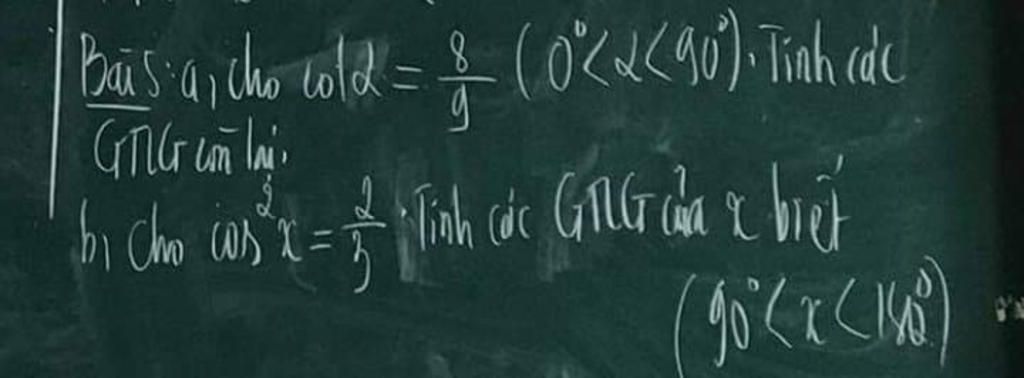 Bài 5: a, cho cotα = 8/9 (0° < α < 90°). Tính các
GTLG còn lại.
b, Cho cos²x = 2/3. Tính các GTLG của x biết
(90° < x < 180°)